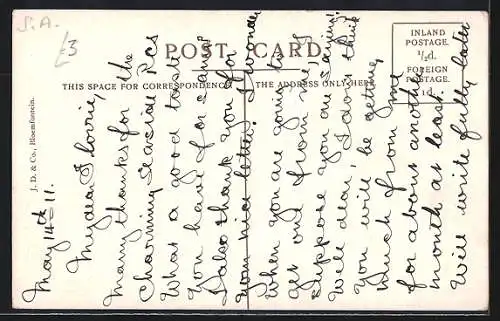 S.A.
£3
POST CARD.
THIS SPACE FOR CORRESPONDENCE
THE ADDRESS ONLY HERE
INLAND
POSTAGE.
½d.
FOREIGN
POSTAGE.
1d.
J. D. & Co., Bloemfontein.
May 14th 11.
My dear Florrie,
many thanks for the
charming seaside P.cs
What a good taste
you have for same
I also thank you for
your nice letter. I wonder
when you are going to
get one from me, I
suppose you are saying!
Well dear, I don't think
you will be getting
much from me
for about another
month at least.
Will write fully later